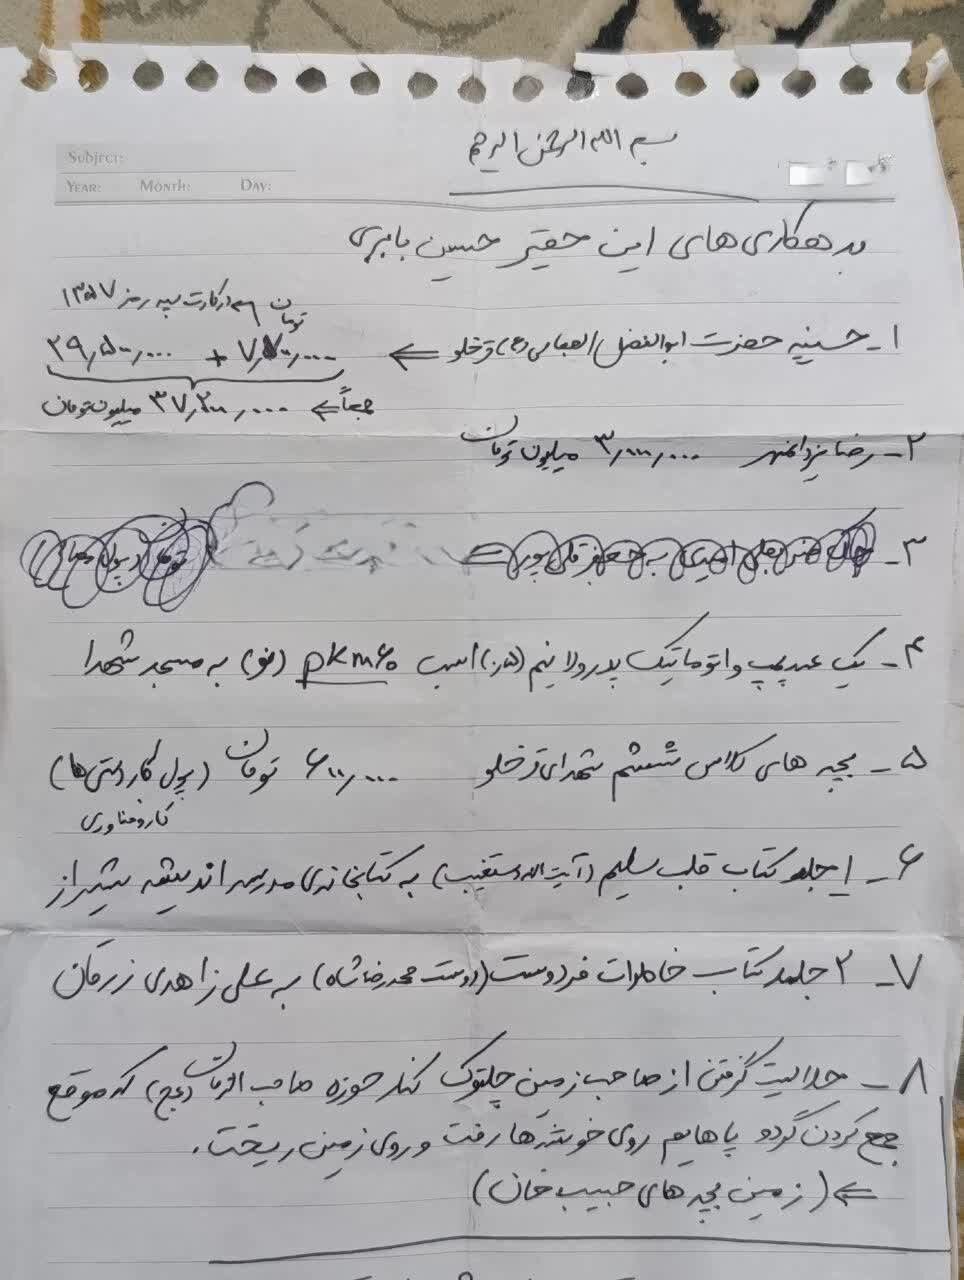 بسم الله الرحمن الرحیم
Subject:
Year: Month: Day:
بدهکاری های این حقیر حسین بابری
در کارت سپه رمز ۱۳۵۷
تومان
۱ـ حسینیه حضرت ابوالفضل العباس (ع) قزخلو ⇐ ۷٫۷۰۰٫۰۰۰ + ۲۹٫۵۰۰٫۰۰۰
جمعاً ⇐ ۳۷٫۲۰۰٫۰۰۰ میلیون تومان
۲ـ رضا یزدانمهر ۳٫۰۰۰٫۰۰۰ میلیون تومان
۳ـ
۴ـ یک عدد پمپ و اتوماتیک پدرولا نیم اسب pkm60 (نو) به مسجد شهدا
۵ـ بچه های کلاس ششم شهدای قزخلو ۶۰۰٫۰۰۰ تومان (پول کاردستی ها)
کاروفناوری
۶ـ ۱ جلد کتاب قلب سلیم (آیت الله دستغیب) به کتابخانه‌ی مدرسه اندیشه شیراز
۷ـ ۲ جلد کتاب خاطرات فردوست (دوست محمدرضا شاه) به علی زاهدی زرقان
۸ـ حلالیت گرفتن از صاحب زمین چلتوک کنار حوزه صاحب الزمان (عج) که موقع
جمع کردن گردو پاهایم روی خوشه‌ها رفت و روی زمین ریخت.
⇐ (زمین بچه های حبیب خان)